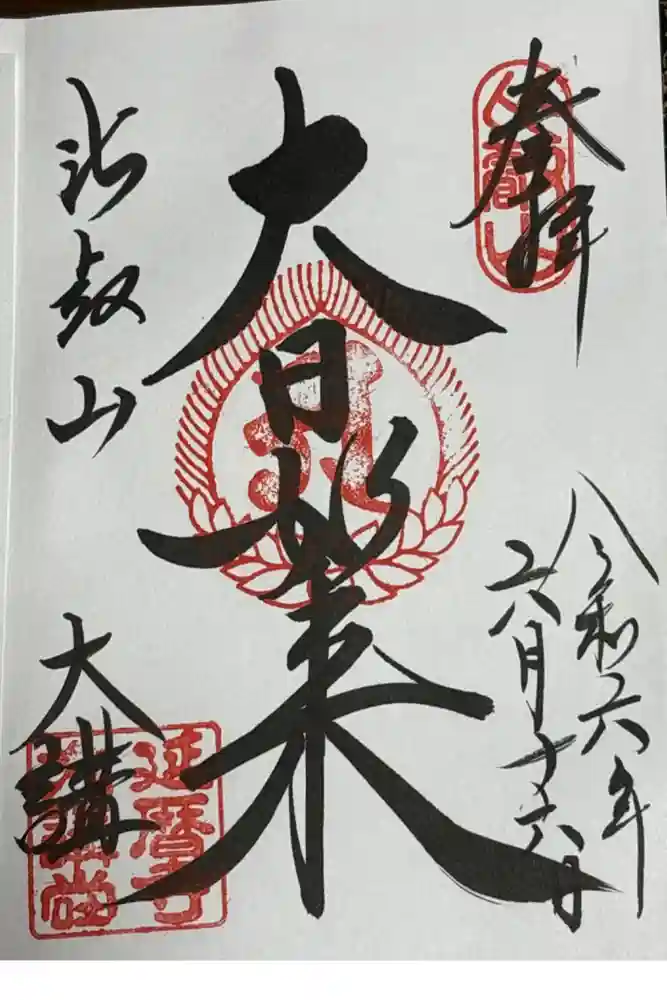 奉拝
比叡山
令和六年
六月十六日
大日如来
比叡山
大講
延暦寺
大講堂